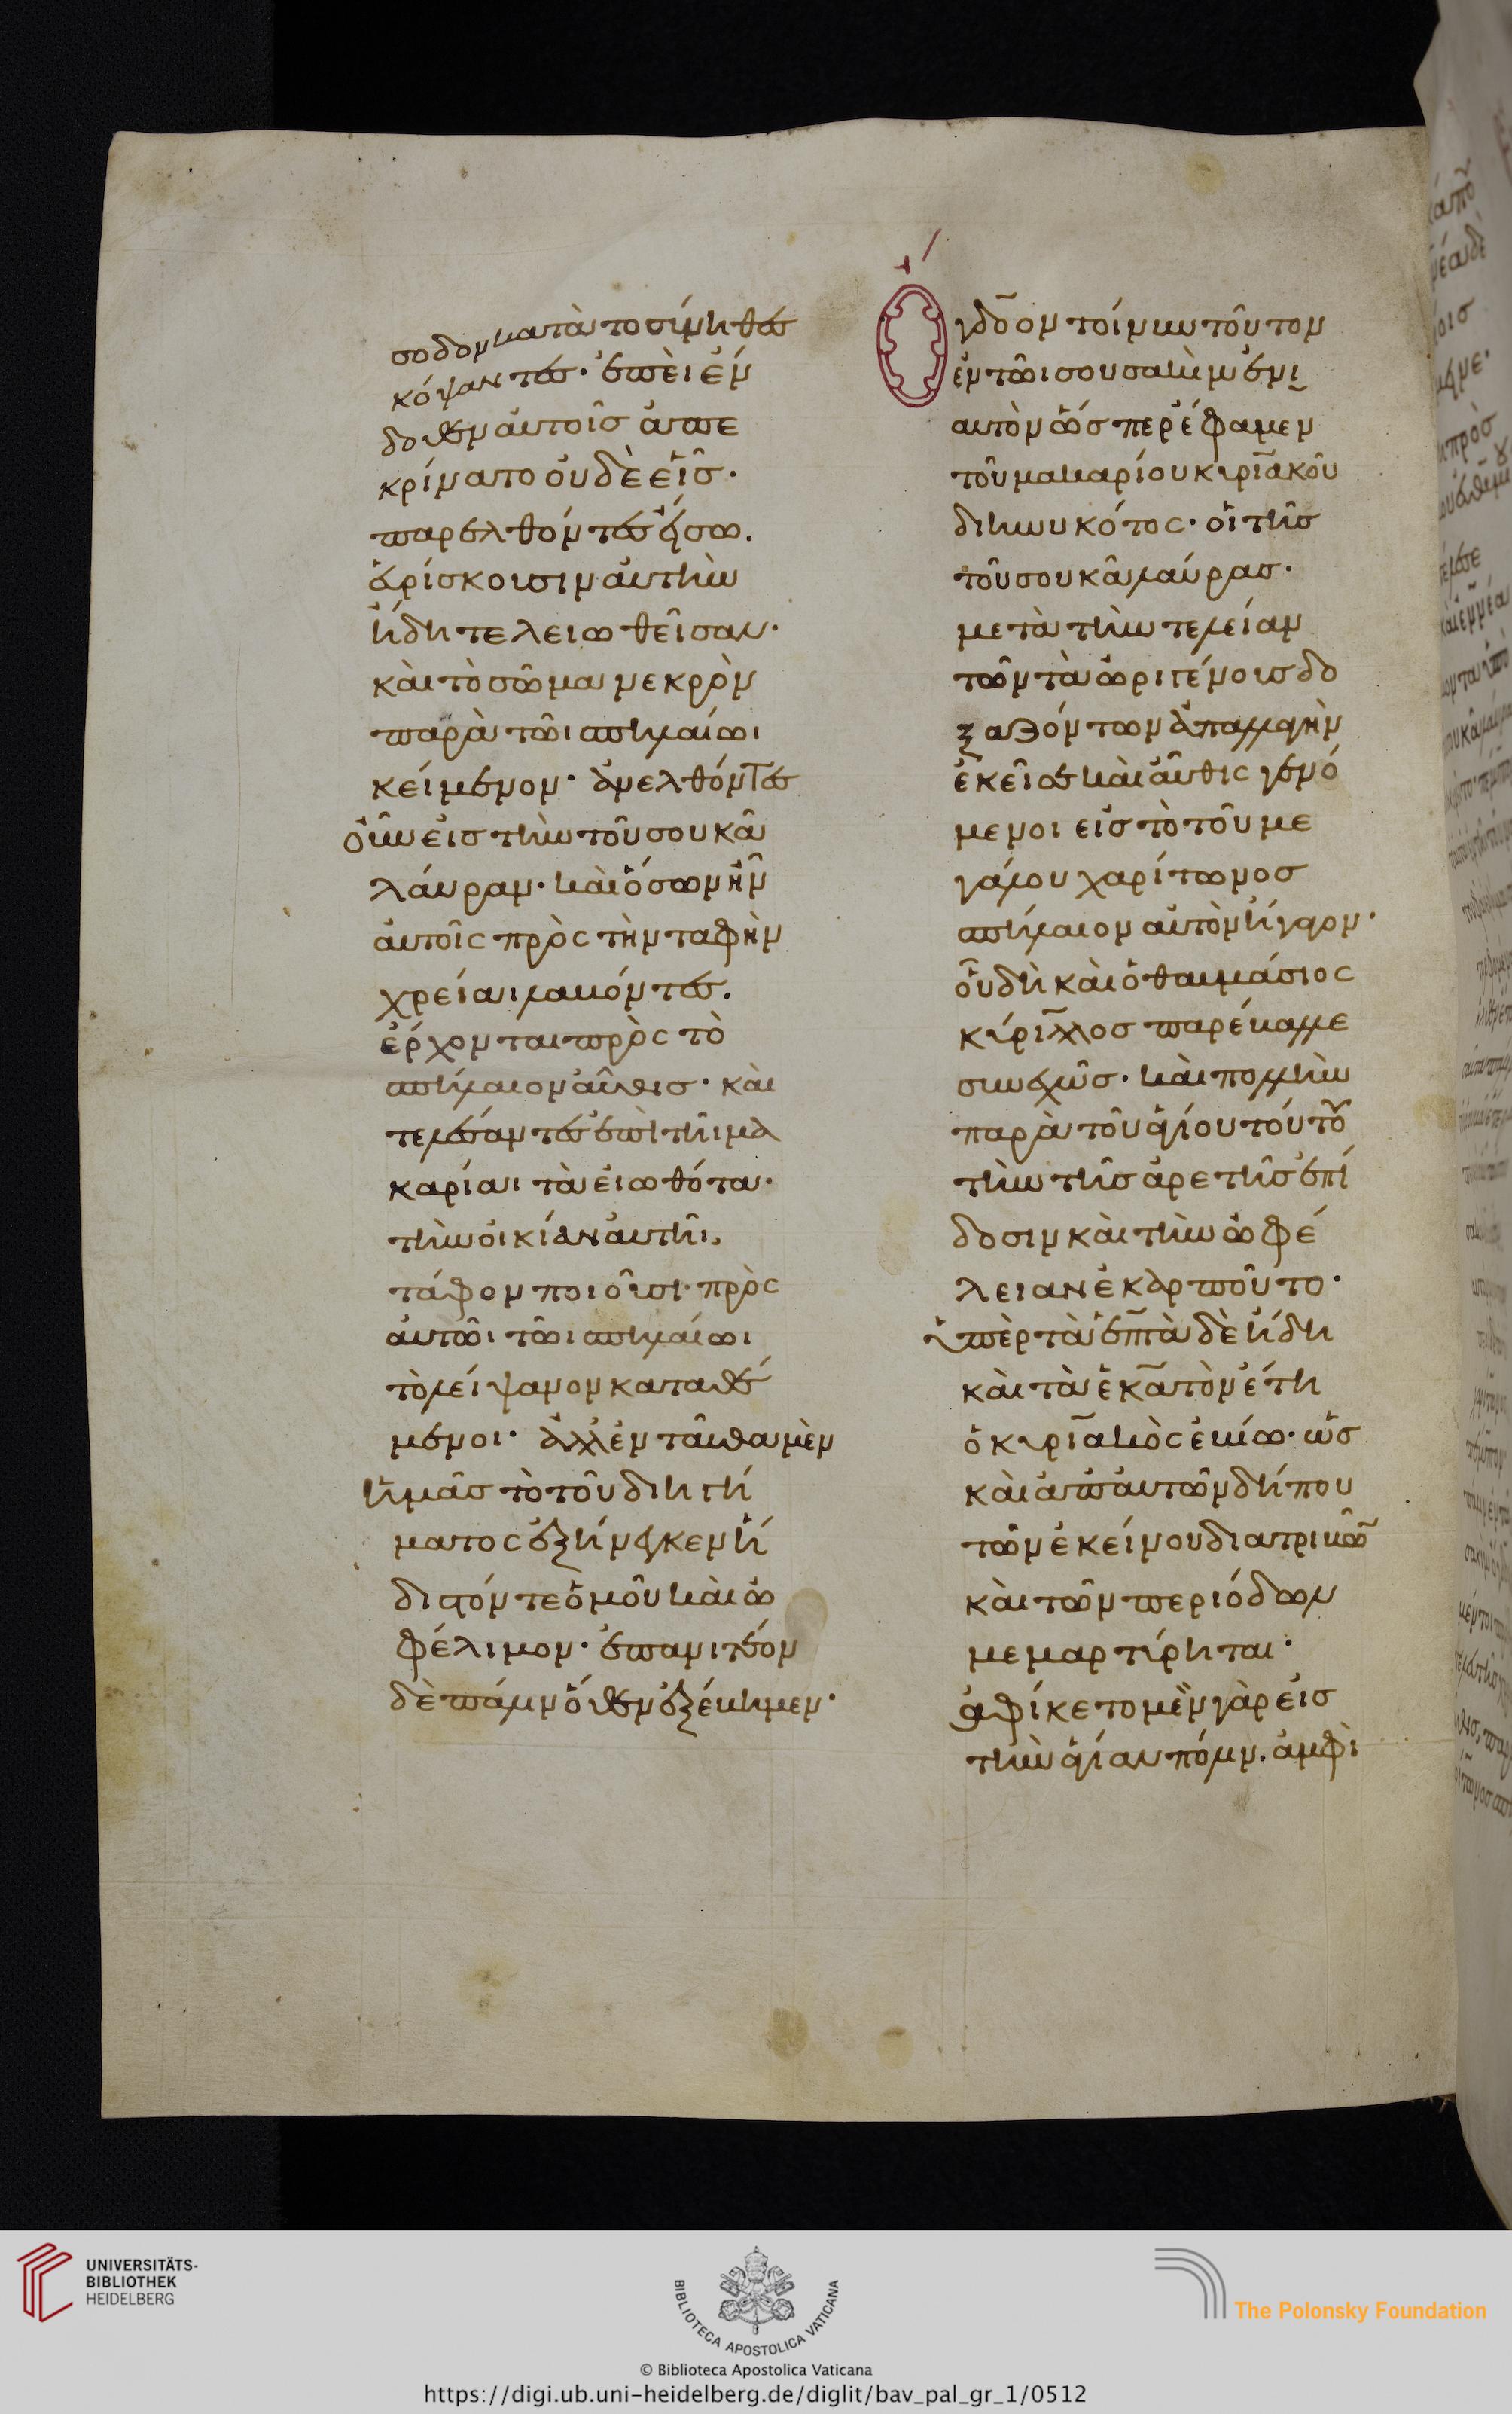 σοδον κατὰ τὸ σύνηθες
κόψαντες· ἐπεὶ ἔν
δοθεν αὐτοῖς ἀπε
κρίνατο οὐδὲ εἷς·
παρελθόντες ἔσω.
εὑρίσκουσιν αὐτὴν
ἤδη τελειωθεῖσαν·
καὶ τὸ σῶμα νεκρὸν
παρὰ τῶι σπηλαίωι
κείμενον· ἀνελθόντες
οὖν εἰς τὴν τοῦ σουκᾶ
λάυραν· καὶ ὅσων ἦν
αὐτοῖς πρὸς τὴν ταφὴν
χρεία λαβόντες.
ἔρχονται πρὸς τὸ
σπήλαιον αὖθις· καὶ
τελέσαντες ἐπὶ τῆι μα
καρίαι τὰ εἰωθότα·
τὴν οἰκίαν αὐτῆι,
τάφον ποιοῦσι· πρὸς
αὐτῶι τῶι σπηλαίωι
τὸ λείψανον καταθέ
μενοι· ἀλλ' ἐνταῦθα μὲν
ἡμᾶς τὸ τοῦ διηγή
ματος ἐξήνεγκεν ἡ
διστόν τε ὁμοῦ καὶ ὠ
φέλιμον· ἐπανιτέον
δὲ πάλιν ὅθεν ἐξέβημεν·
Ογδοον τοίνυν τοῦτον
ἐν τῶι σουσακὶμ ἐνι
αυτὸν ὥσπερ ἔφαμεν
τοῦ μακαρίου κυριακοῦ
διηνυκότος· οἱ τῆς
τοῦ σουκᾶ λαύρας·
μετὰ τὴν τελείαν
τῶν τὰ ὠριγένους δο
ξαζόντων ἀπαλλαγὴν
ἐκεῖσε καὶ αὖθις γενό
μενοι εἰς τὸ τοῦ με
γάλου χαρίτωνος
σπήλαιον αὐτὸν ἤγαγον·
οὗ δὴ καὶ ὁ θαυμάσιος
κύριλλος παρέβαλλε
συνεχῶς· καὶ πολλὴν
παρὰ τοῦ ἁγίου τούτου
τὴν τῆς ἀρετῆς ἐπί
δοσιν καὶ τὴν ὠφέ
λειαν ἐκαρποῦτο·
ὑπὲρ τὰ ἑπτὰ δὲ ἤδη
καὶ τὰ ἑκατὸν ἔτη
ὁ κυριακὸς ἐβίω· ὡς
καὶ ἀπ' αὐτῶν δήπου
τῶν ἐκείνου διατριβῶν
καὶ τῶν περιόδων
μεμαρτύρηται·
ἀφίκετο μὲν γὰρ εἰς
τὴν ἁγίαν πόλιν. ἀμφὶ
UNIVERSITÄTS-
BIBLIOTHEK
HEIDELBERG
BIBLIOTECA APOSTOLICA VATICANA
© Biblioteca Apostolica Vaticana
The Polonsky Foundation
https://digi.ub.uni-heidelberg.de/diglit/bav_pal_gr_1/0512